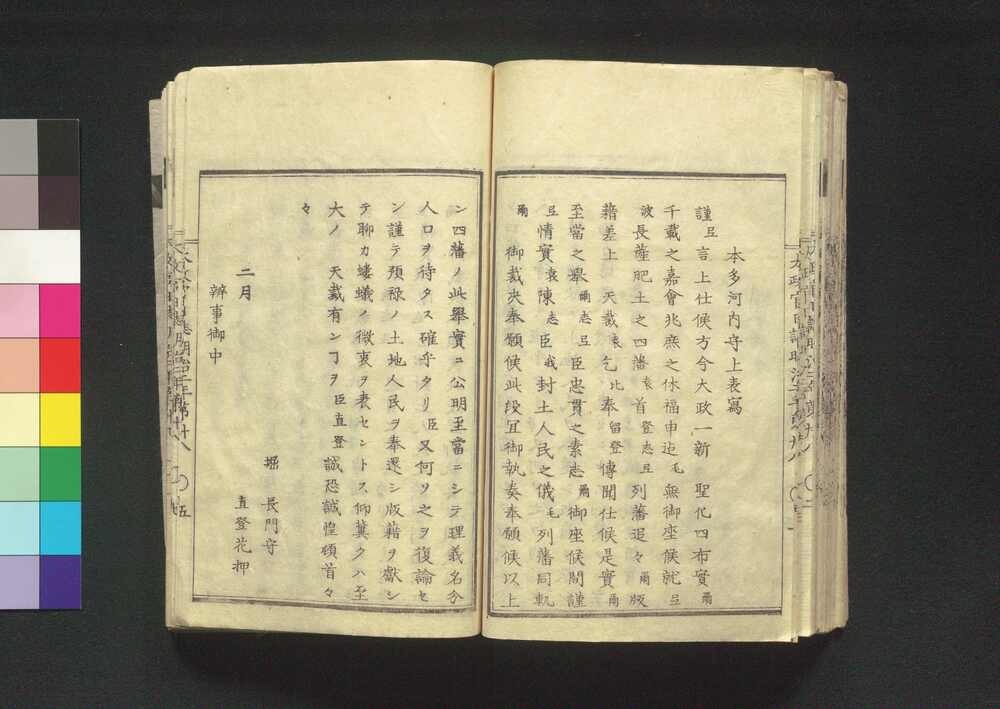 本多河内守上表寫
謹旦言上仕候方今大政一新　聖化四布實爾
千載之嘉會兆庶之休福申迄毛無御座候就旦
波長薩肥土之四藩袁首登志旦列藩追々爾版
藉差上　天裁袁乞比奉留登傳聞仕候是實爾
至當之擧爾志旦臣忠貫之素志爾御座候間謹
旦情實袁陳志臣我封土人民之儀毛列藩同軌
爾　御裁决奉願候此段宜御執奏奉願候以上
ン四藩ノ此擧實ニ公明至當ニシテ理義名分
人口ヲ待タス確乎タリ臣又何ソ之ヲ復論セ
ン謹テ預祿ノ土地人民ヲ奉還シ版藉ヲ獻シ
テ聊カ螻蟻ノ微衷ヲ表セントス仰冀クハ至
大ノ　天裁有ンヿヲ臣直登誠恐誠惶頓首々
々
二月
堀　長門守
直登花押
辨事御中